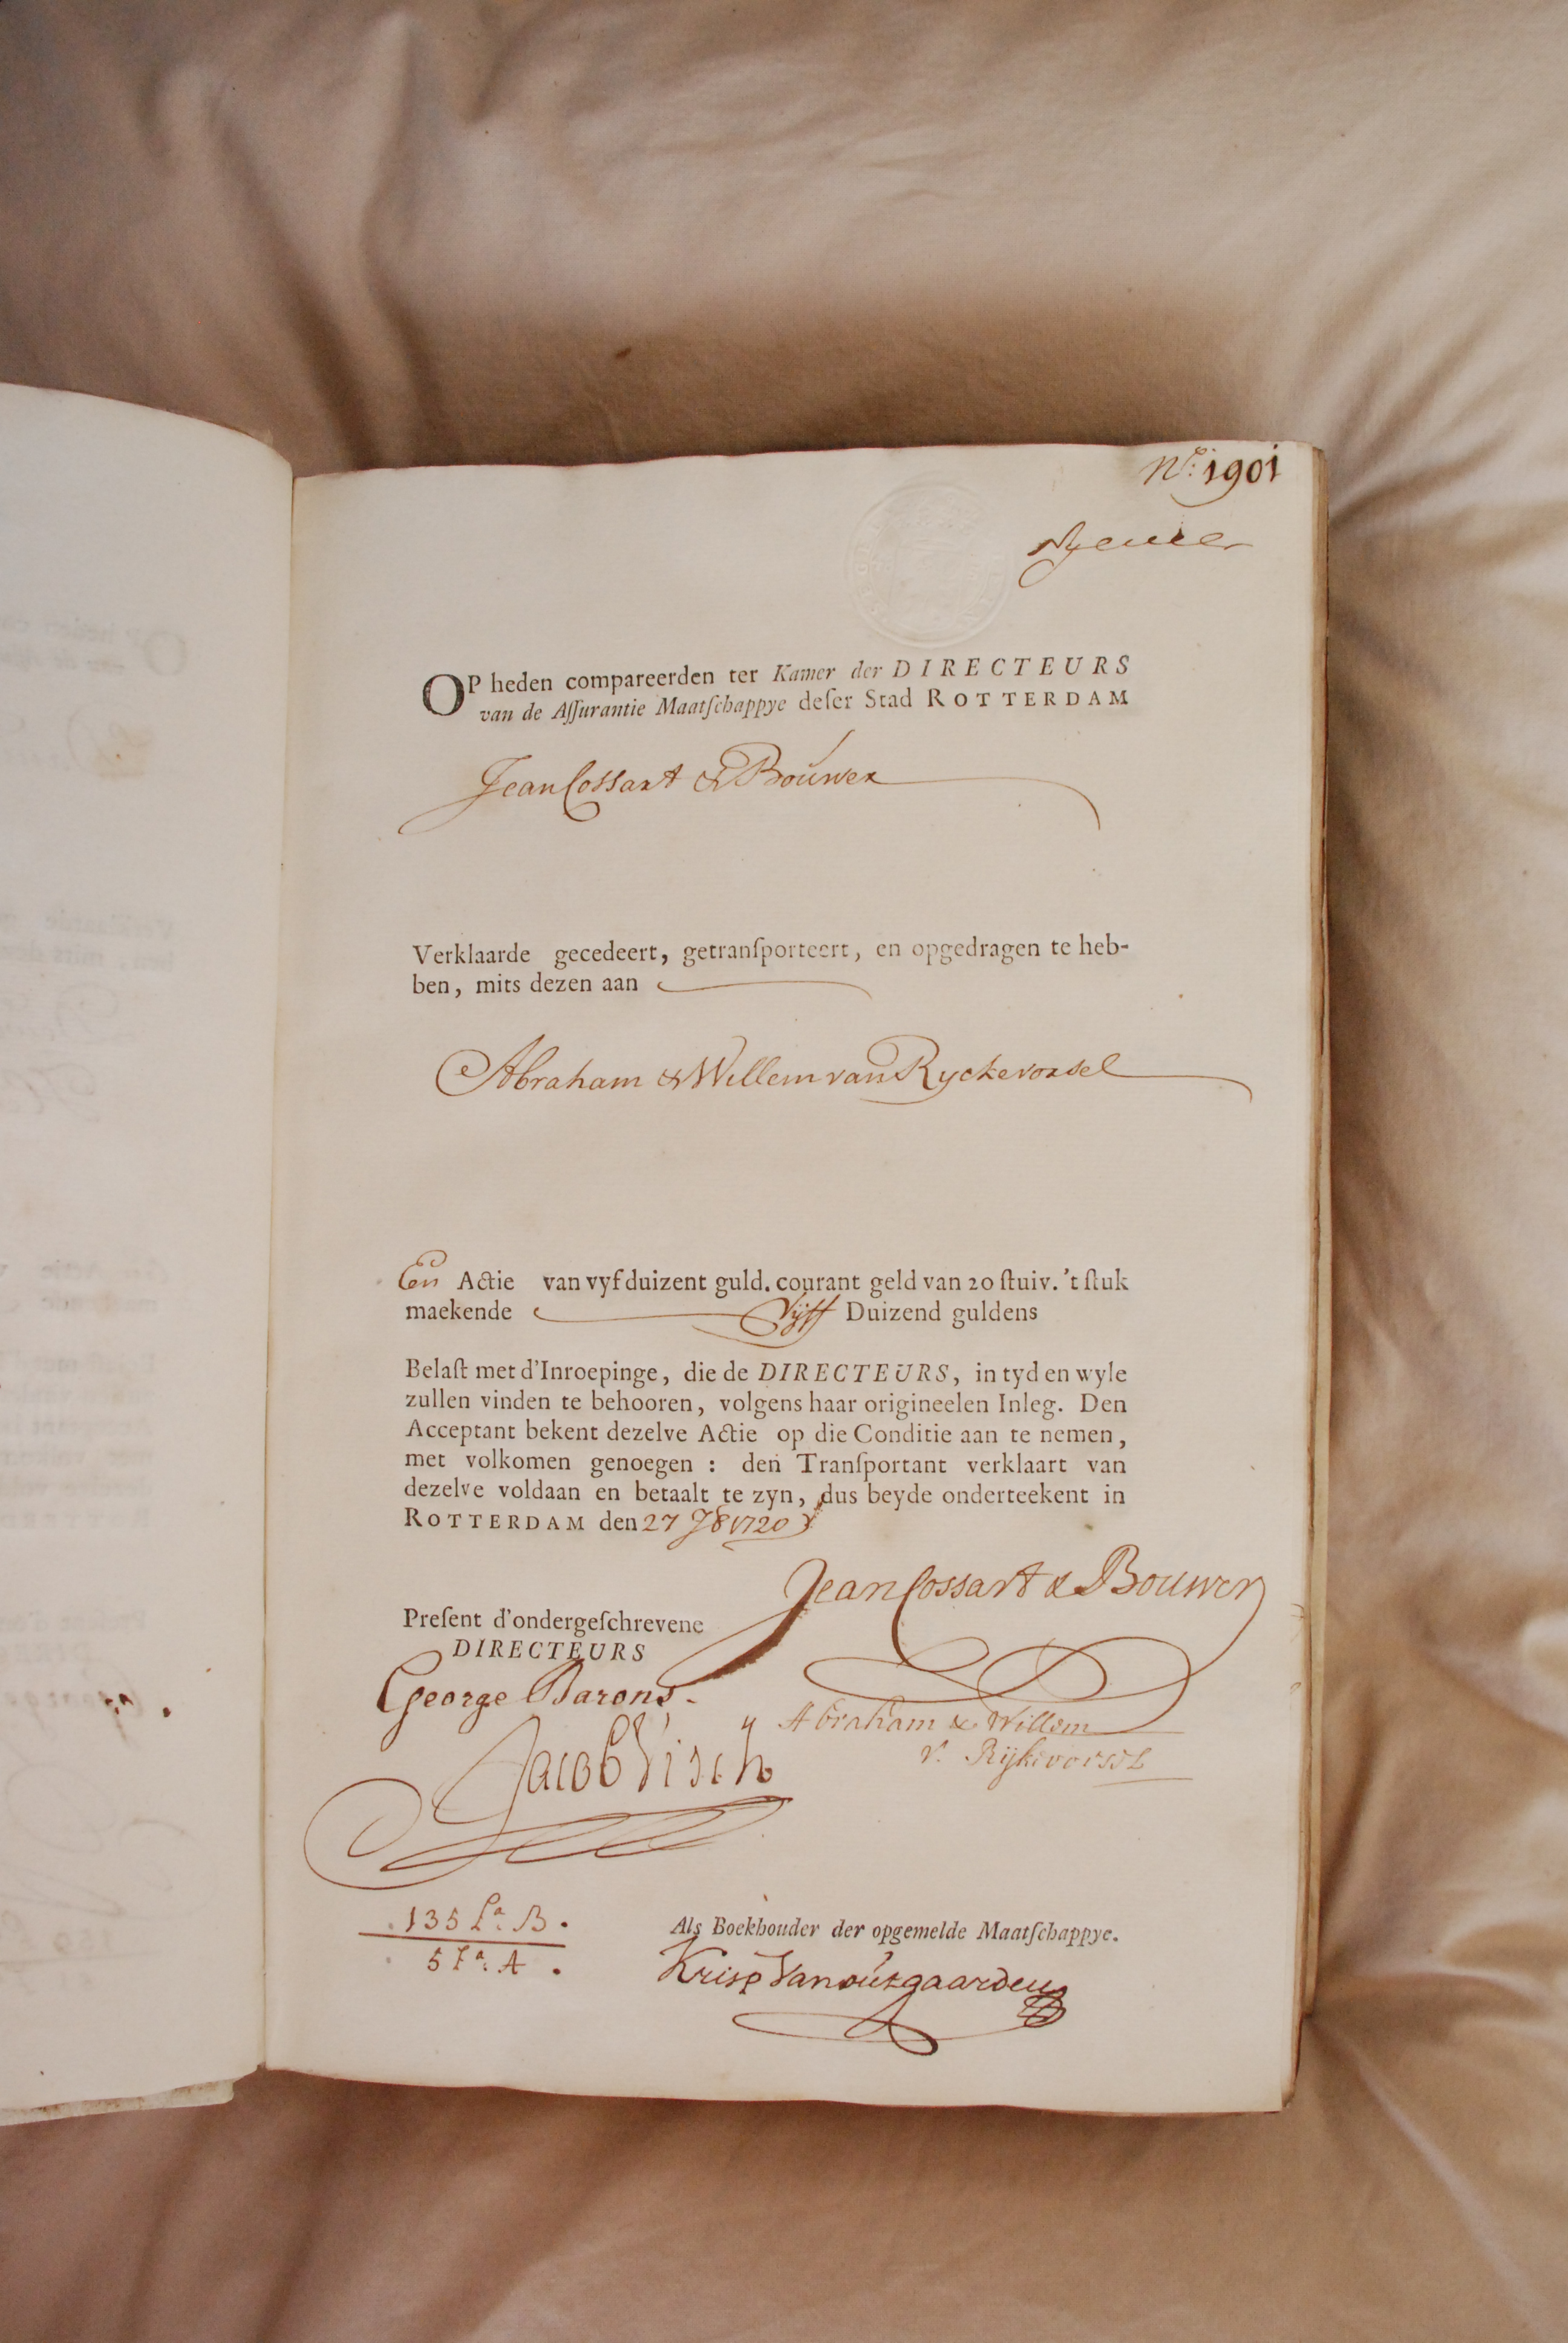 No: 1901
OP heden compareerden ter Kamer der DIRECTEURS
van de Aſſurantie Maatſchappye deſer Stad ROTTERDAM
Jean Cossart & Bouwer
Verklaarde gecedeert, getranſporteert, en opgedragen te heb-
ben, mits dezen aan
Abraham & Willem van Ryckevorsel
Een Actie van vyf duizent guld. courant geld van 20 ſtuiv. 't ſtuk
maekende Vijff Duizend guldens
Belaſt met d'Inroepinge, die de DIRECTEURS, in tyd en wyle
zullen vinden te behooren, volgens haar origineelen Inleg. Den
Acceptant bekent dezelve Actie op die Conditie aan te nemen,
met volkomen genoegen : den Tranſportant verklaart van
dezelve voldaan en betaalt te zyn, dus beyde onderteekent in
ROTTERDAM den 27 1720
Jean Cossart & Bouwer
Preſent d'ondergeſchrevene
DIRECTEURS
George Barons.
Abraham & Willem
v. Rijkevorsel
Jacob Visch
135 La. B.
5 La. A.
Als Boekhouder der opgemelde Maatſchappye.